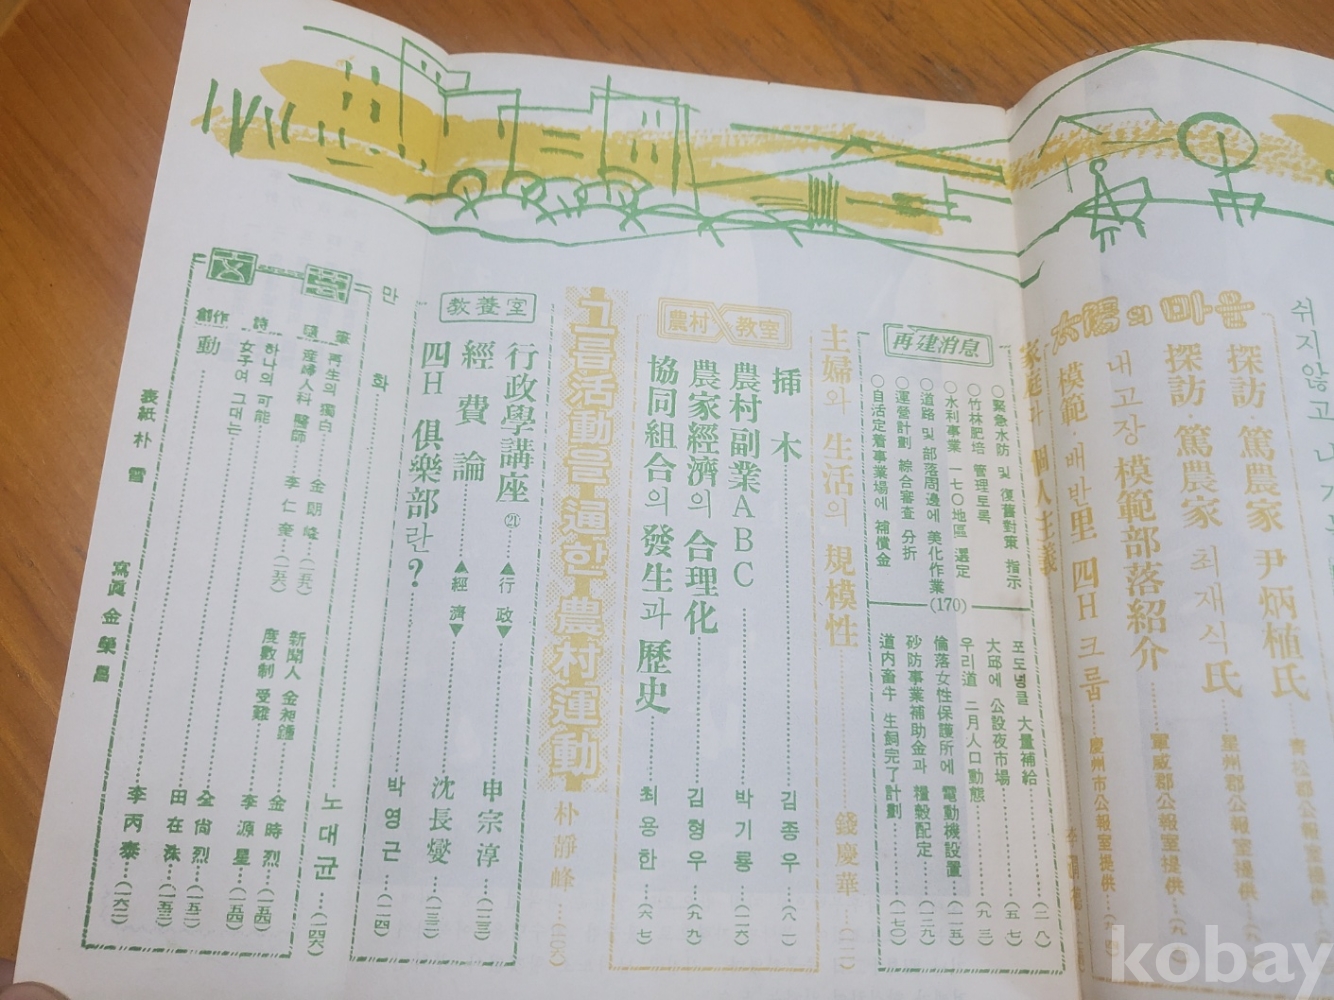 쉬지않고
太陽의 마을
探訪·篤農家 尹炳植氏
探訪·篤農家 최재식氏……星州郡公報室提供
내고장 模範部落紹介……軍威郡公報室提供
模範·배반里 四H크룹……慶州市公報室提供
家庭과 個人主義
再建消息
○緊急水防 및 復舊對策 指示
○竹林肥培 管理토록
○水利事業 一七○地區 選定
○道路 및 部落周邊에 美化作業
○運營計劃 綜合審査 分折
○自活定着事業場에 補償金
(170)
포도넝쿨 大量補給……(二八)
大邱에 公設夜市場……(五七)
우리道 二月人口動態……(九三)
倫落女性保護所에 電動機設置……(一一五)
砂防事業補助金과 糧穀配定……(一二九)
道内畜牛 生飼完了計劃……(一七〇)
主婦와 生活의 規模性……錢慶華……(一一二)
農村教室
揷木……김종우……(八一)
農村副業ABC……박기룡……(一二六)
農家經濟의 合理化……김형우……(九九)
協同組合의 發生과 歷史……최용한……(六七)
그룹活動을 通한 農村運動 朴靜峰……(一〇六)
教養室
行政學講座 ㉑……▲行政▼……申宗淳……(一二三)
經費論……▲經濟▼……沈長燮……(一三三)
四H 俱樂部란?……박영근……(一一四)
만화……노대균……(一四六)
文藝
隨筆
再生의 獨白……金朗峰……(一五九)
産婦人科 醫師……李仁奎……(一五六)
新聞人 金昶鍾
度數制 受難
詩
하나의 可能……金時烈……(一五四)
女子여 그대는……李源星……(一五四)
全尙烈……(一五二)
田在洙……(一五三)
創作
動……李丙泰……(一六二)
表紙 朴雷
寫眞 金榮昌
kobay